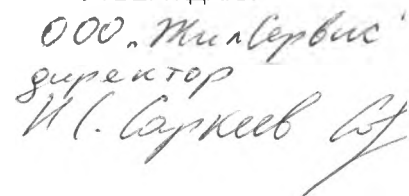 ООО „ЖилСервис"
директор
И.С. Саркеев